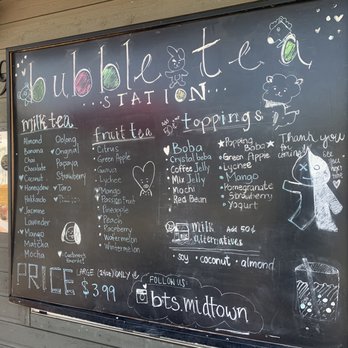 bubble tea
STATION
milk tea
Almond
Banana
Chai
Chocolate
Coconut
Honeydew
Hokkaido
Jasmine
Lavender
Mango
Matcha
Mocha
Oolong
Original
Papaya
Strawberry
Taro
Thai
fruit tea
Citrus
Green Apple
Guava
Lychee
Mango
Passion Fruit
Pineapple
Peach
Raspberry
Watermelon
Wintermelon
toppings
Boba
Crystal boba
Coffee Jelly
Milk Jelly
Mochi
Red Bean
Popping Boba
Green Apple
Lychee
Mango
Pomegranate
Strawberry
Yogurt
Thank you
for coming
Milk Add 50¢
Alternatives
soy · coconut · almond
PRICE LARGE (24oz) ONLY
$3.99
FOLLOW US:
bts.midtown